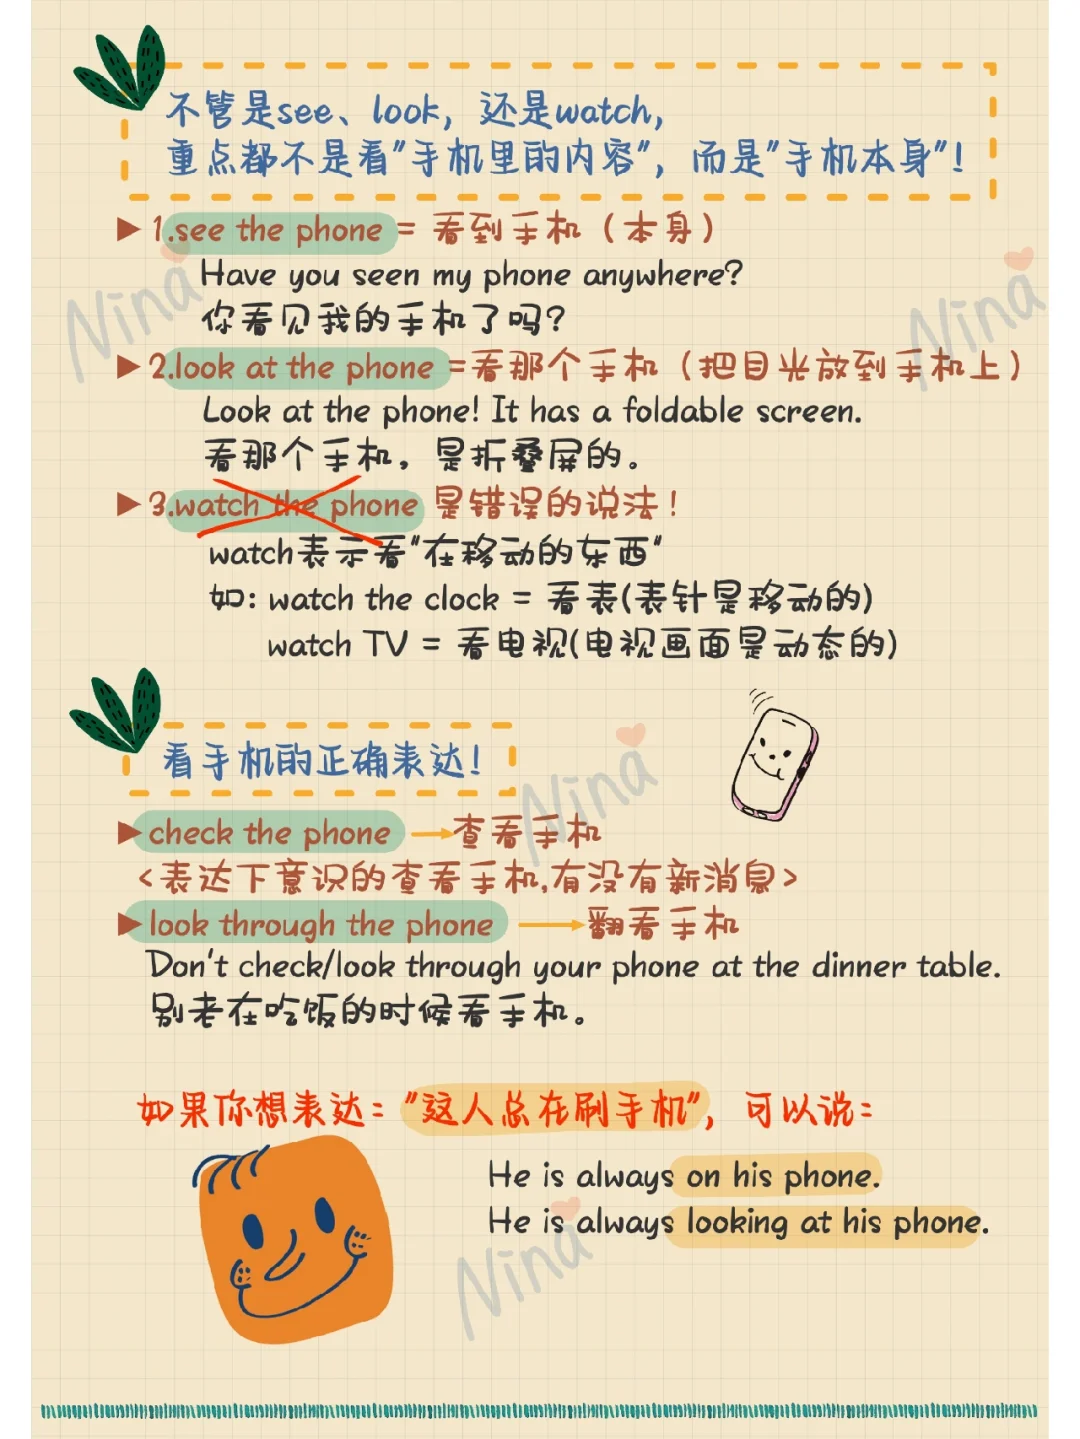 不管是see、look，还是watch，
重点都不是看"手机里的内容"，而是"手机本身"！
1.see the phone = 看到手机（本身）
Have you seen my phone anywhere?
你看见我的手机了吗?
2.look at the phone =看那个手机（把目光放到手机上）
Look at the phone! It has a foldable screen.
看那个手机，是折叠屏的。
3.watch the phone 是错误的说法！
watch表示看"在移动的东西"
如: watch the clock = 看表(表针是移动的)
watch TV = 看电视(电视画面是动态的)
看手机的正确表达！
check the phone → 查看手机
<表达下意识的查看手机,有没有新消息>
look through the phone → 翻看手机
Don't check/look through your phone at the dinner table.
别老在吃饭的时候看手机。
如果你想表达: "这人总在刷手机"，可以说:
He is always on his phone.
He is always looking at his phone.
Nina
Nina
Nina
Nina